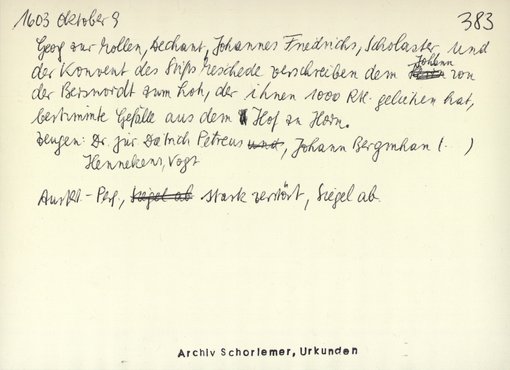 1603 Oktober 9 383
Georg zur Mollen, Dechant, Johannes Friedrichs, Scholaster, und
der Konvent des Stifts Meschede verschreiben dem Johann von
der Berswordt zum Loh, der ihnen 1000 Rtl. geliehen hat,
bestimmte Gefälle aus dem Hof zu Horn.
Zeugen: Dr. jur. Dietrich Petreus und, Johann Bergmhan (...)
Hennekens, Vogt
Ausf. - Perg., Siegel ab stark zerstört, Siegel ab.
Archiv Schorlemer, Urkunden